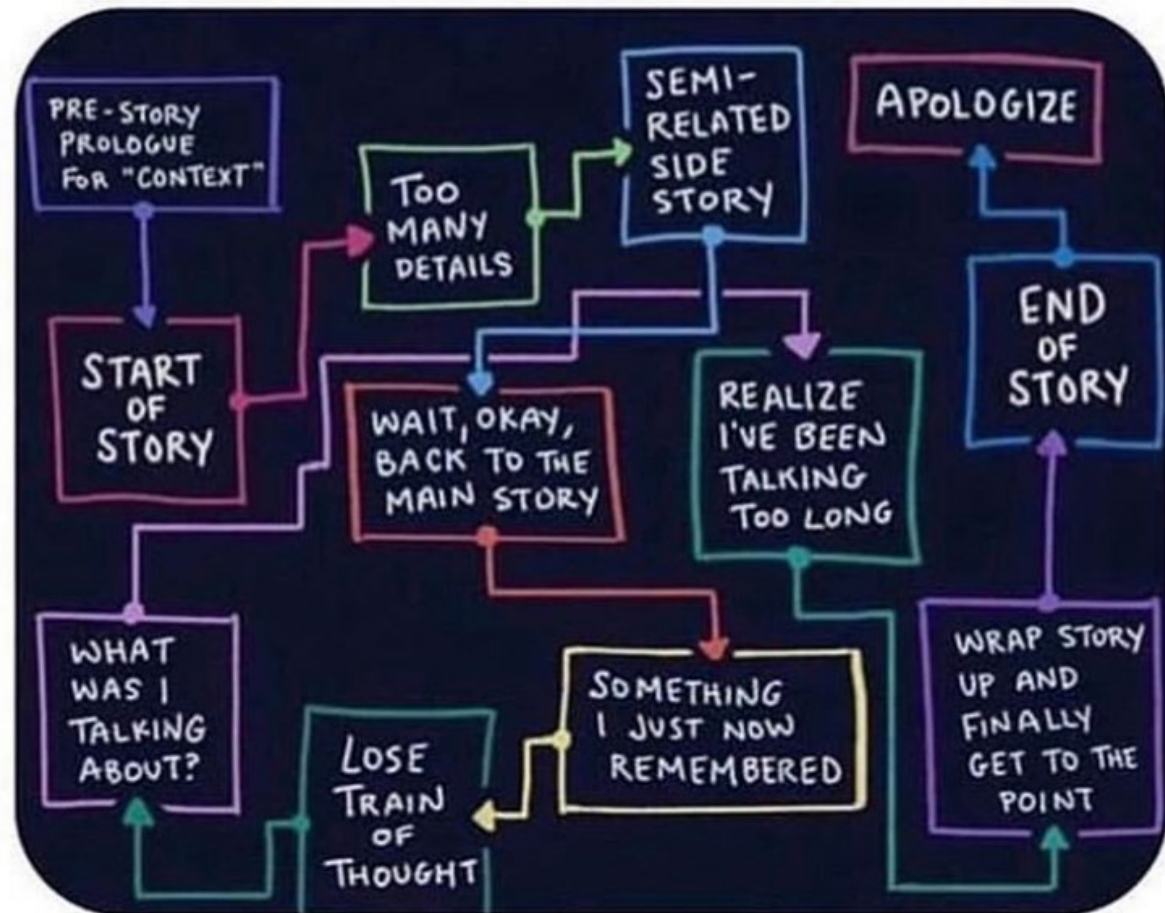 PRE-STORY
PROLOGUE
FOR "CONTEXT"
START
OF
STORY
TOO
MANY
DETAILS
SEMI-
RELATED
SIDE
STORY
WAIT, OKAY,
BACK TO THE
MAIN STORY
SOMETHING
I JUST NOW
REMEMBERED
LOSE
TRAIN
OF
THOUGHT
WHAT
WAS I
TALKING
ABOUT?
REALIZE
I'VE BEEN
TALKING
TOO LONG
WRAP STORY
UP AND
FINALLY
GET TO THE
POINT
END
OF
STORY
APOLOGIZE